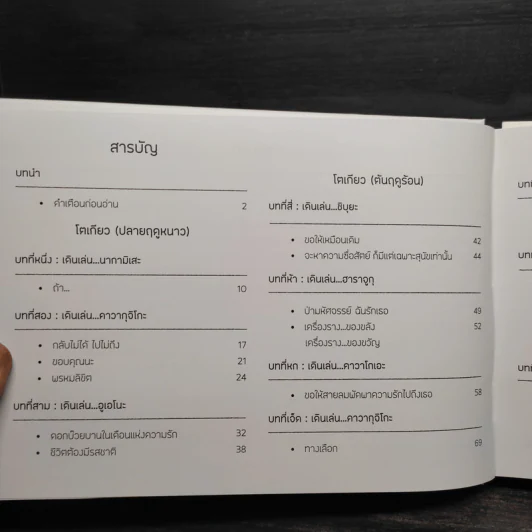 สารบัญ
บทนำ
• คำเตือนก่อนอ่าน 2
โตเกียว (ปลายฤดูหนาว)
บทที่หนึ่ง : เดินเล่น...นากามิเสะ
• ถ้า... 10
บทที่สอง : เดินเล่น...คาวากุจิโกะ
• กลับไม่ได้ ไปไม่ถึง 17
• ขอบคุณนะ 21
• พรหมลิขิต 24
บทที่สาม : เดินเล่น...อูเอโนะ
• ดอกบ๊วยบานในเดือนแห่งความรัก 32
• ชีวิตต้องมีรสชาติ 38
โตเกียว (ต้นฤดูร้อน)
บทที่สี่ : เดินเล่น...ชิบุยะ
• ขอให้เหมือนเดิม 42
• จะหาความซื่อสัตย์ ก็มีแต่เฉพาะสุนัขเท่านั้น 44
บทที่ห้า : เดินเล่น...ฮาราจูกุ
• ป้ามหัศจรรย์ ฉันรักเธอ 49
• เครื่องราง...ของขลัง 52
เครื่องราง...ของขวัญ
บทที่หก : เดินเล่น...คาวาโกเอะ
• ขอให้สายลมพัดพาความรักไปถึงเธอ 58
บทที่เจ็ด : เดินเล่น...คาวากุจิโกะ
• ทางเลือก 69